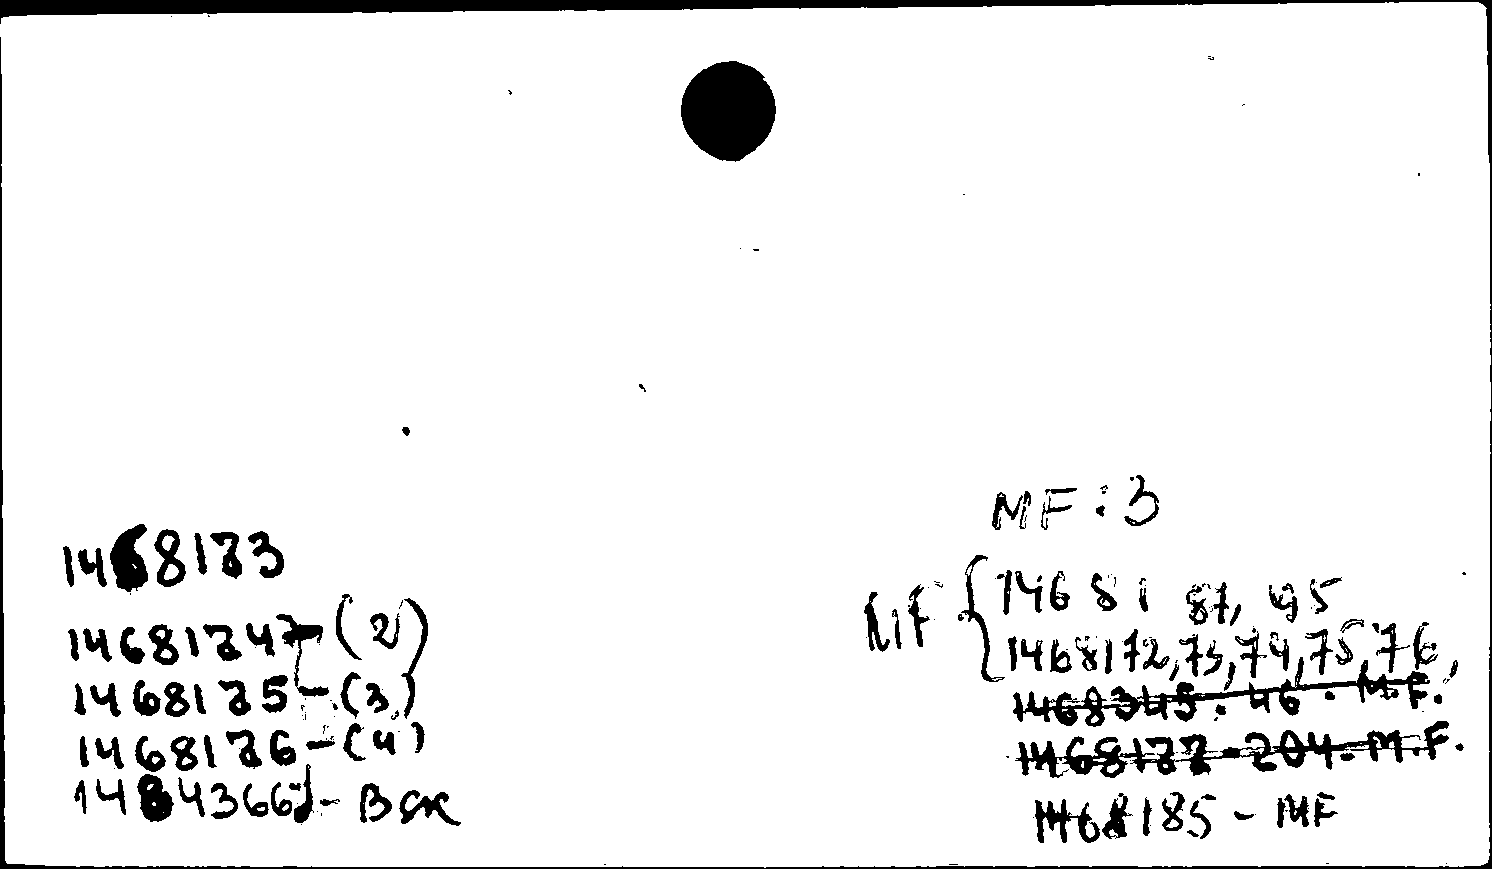 1468173
1468174 - (2)
1468175 - (3)
1468176 - (4)
1484366 -
MF : 3
MF { 14681 87, 95
1468172,73,74,75,76,
1468345. 46. M.F.
1468177 - 204. M.F.
1468185 - MF